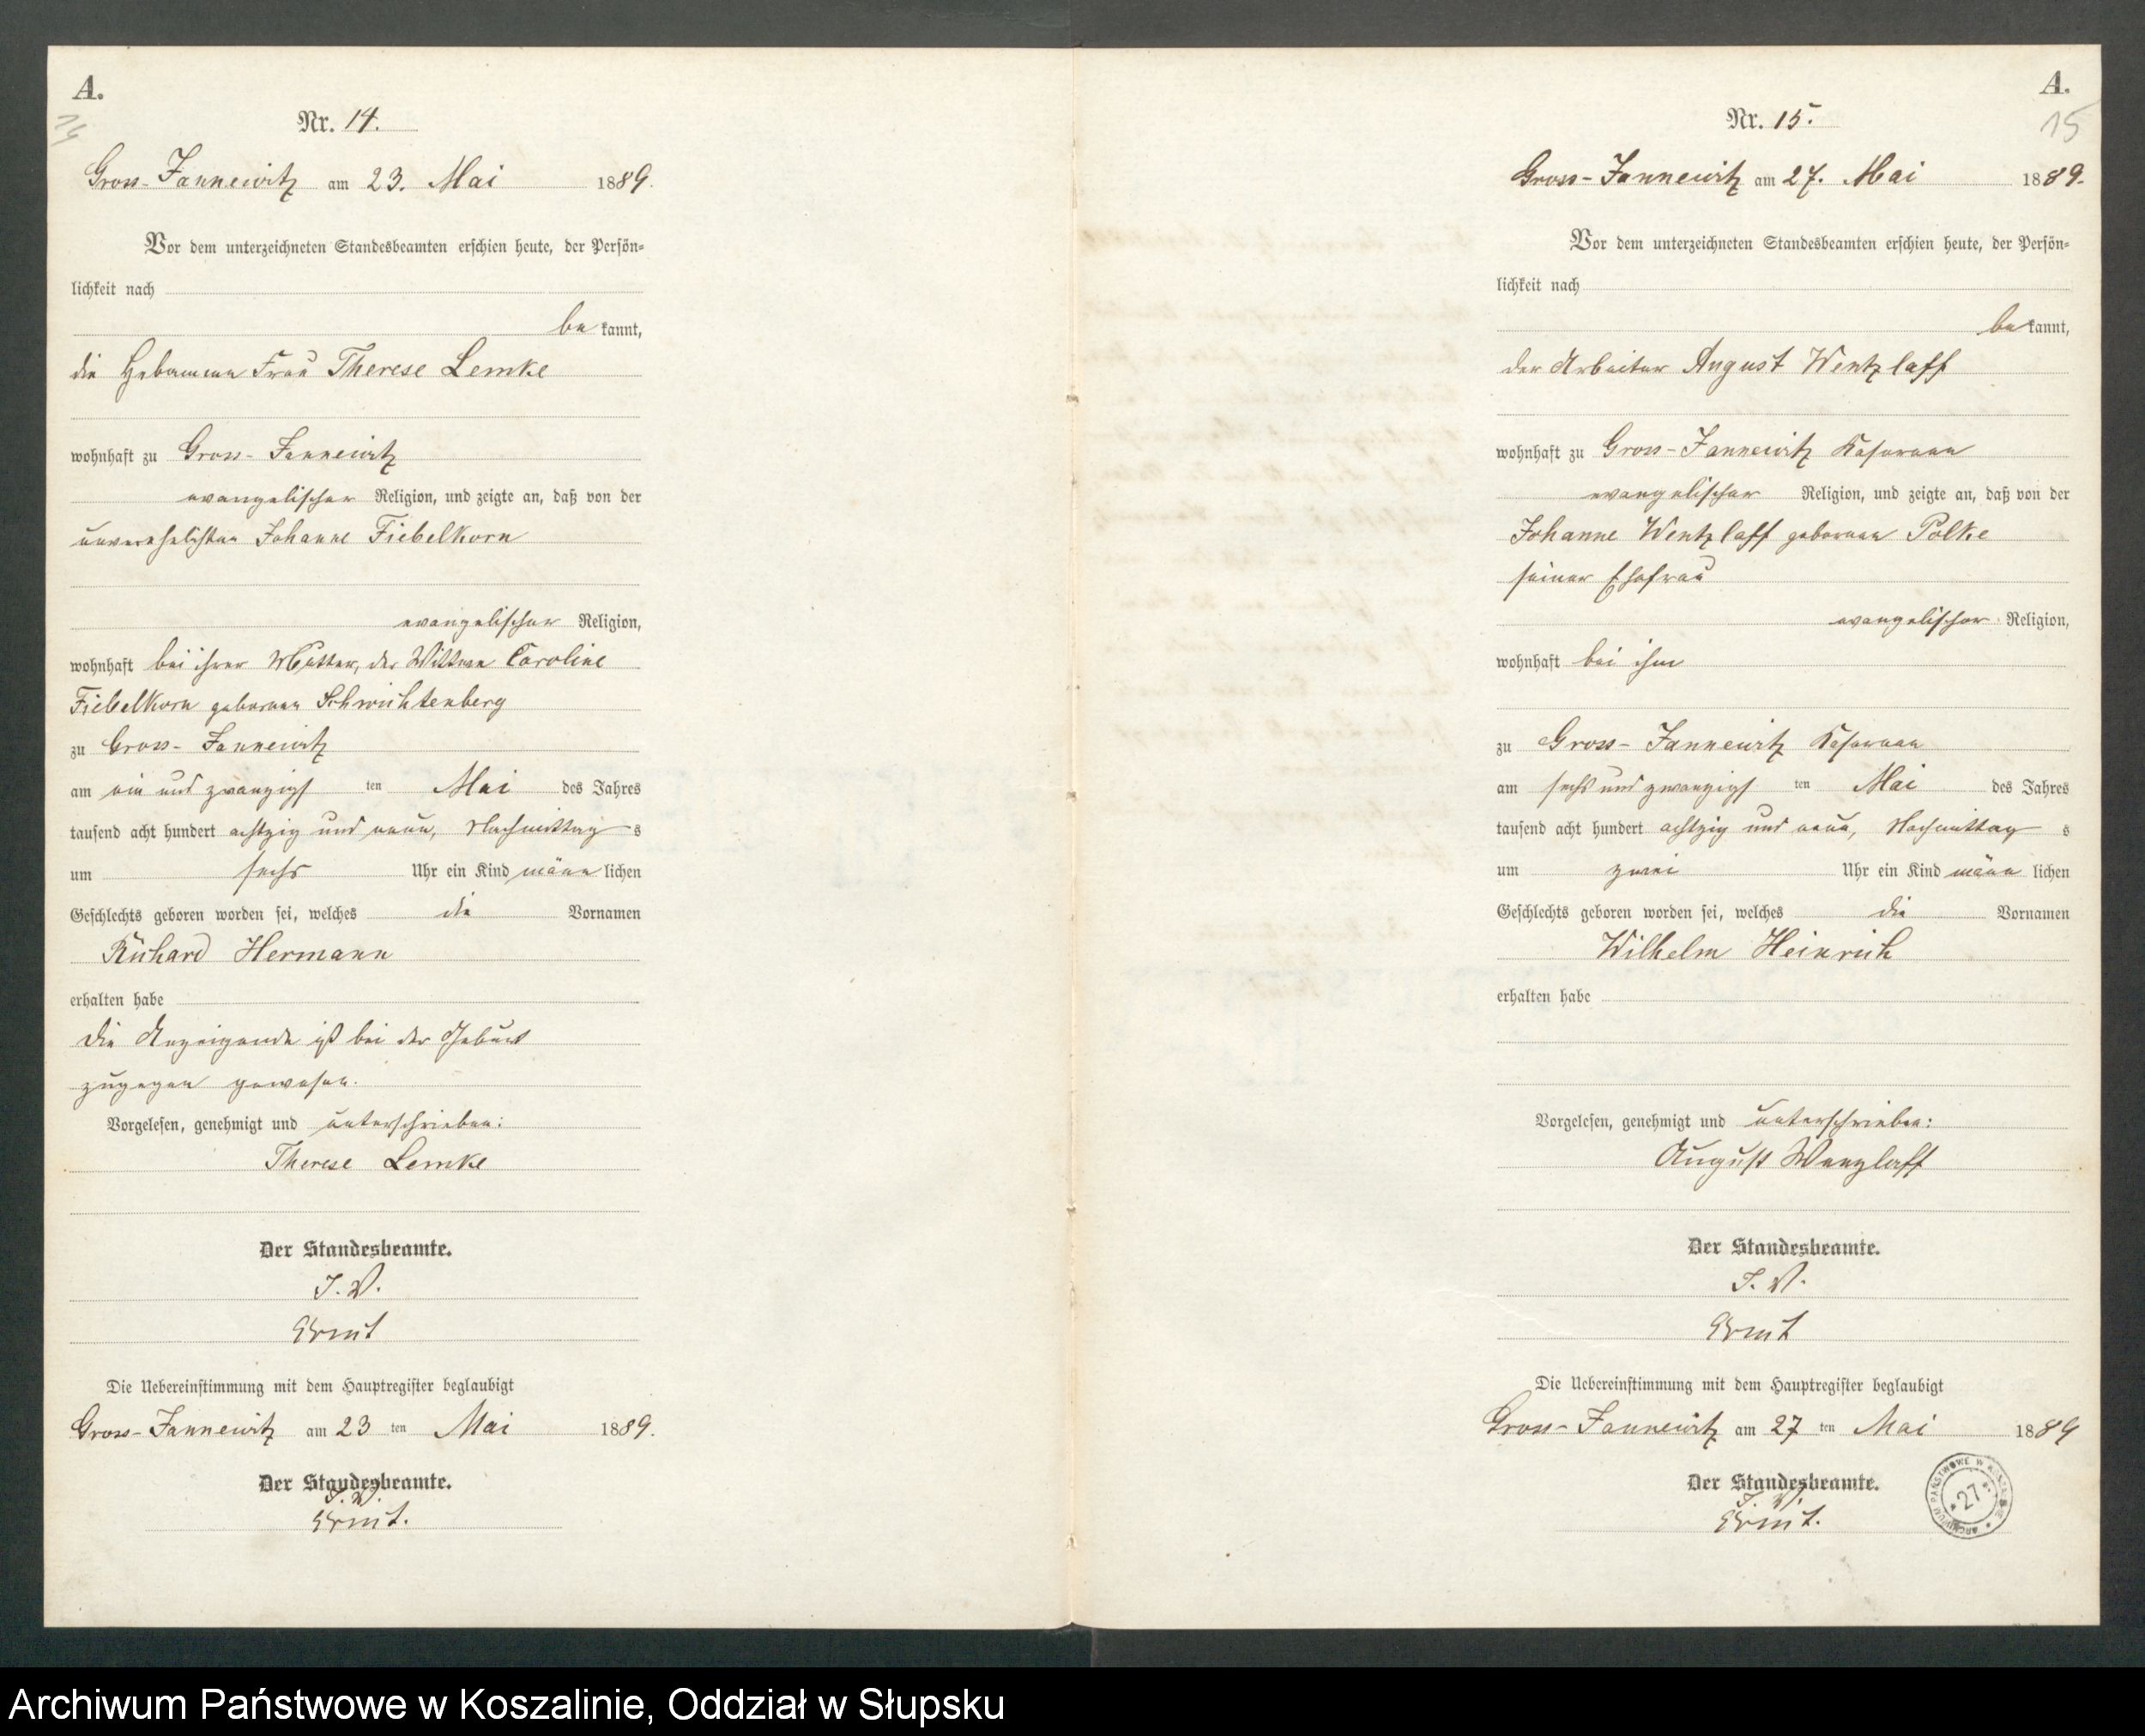 A.
14
Nr. 14.
Gross-Jannewitz am 23. Mai 1889.
Vor dem unterzeichneten Standesbeamten erschien heute, der Persön-
lichkeit nach
be kannt,
die Hebamme Frau Therese Lemke
wohnhaft zu Gross-Jannewitz
evangelischer Religion, und zeigte an, daß von der
unverehelichten Johanne Fiebelkorn
evangelischer Religion,
wohnhaft bei ihrer Mutter, der Wittwe Caroline
Fiebelkorn geborenen Schwichtenberg
zu Gross-Jannewitz
am ein und zwanzigs ten Mai des Jahres
tausend acht hundert achtzig und neun, Nachmittag s
um sechs Uhr ein Kind männ lichen
Geschlechts geboren worden sei, welches die Vornamen
Richard Hermann
erhalten habe
Die Anzeigende ist bei der Geburt
zugegen gewesen.
Vorgelesen, genehmigt und unterschrieben:
Therese Lemke
Der Standesbeamte.
I. V.
Die Uebereinstimmung mit dem Hauptregister beglaubigt
Gross-Jannewitz am 23 ten Mai 1889.
Der Standesbeamte.
I. V.
A.
15
Nr. 15.
Gross-Jannewitz am 27. Mai 1889.
Vor dem unterzeichneten Standesbeamten erschien heute, der Persön-
lichkeit nach
be kannt,
der Arbeiter August Wentzlaff
wohnhaft zu Gross-Jannewitz Kaserene
evangelischer Religion, und zeigte an, daß von der
Johanne Wentzlaff geborenen Polke
seiner Ehefrau
evangelischer Religion,
wohnhaft bei ihm
zu Gross-Jannewitz Kaserene
am sechs und zwanzigs ten Mai des Jahres
tausend acht hundert achtzig und neun, Nachmittag s
um zwei Uhr ein Kind männ lichen
Geschlechts geboren worden sei, welches die Vornamen
Wilhelm Heinrich
erhalten habe
Vorgelesen, genehmigt und unterschrieben:
August Wenzlaff
Der Standesbeamte.
I. V.
Die Uebereinstimmung mit dem Hauptregister beglaubigt
Gross-Jannewitz am 27 ten Mai 1889
Der Standesbeamte.
I. V.
ARCHIWUM PAŃSTWOWE W KOSZALINIE
27
Archiwum Państwowe w Koszalinie, Oddział w Słupsku